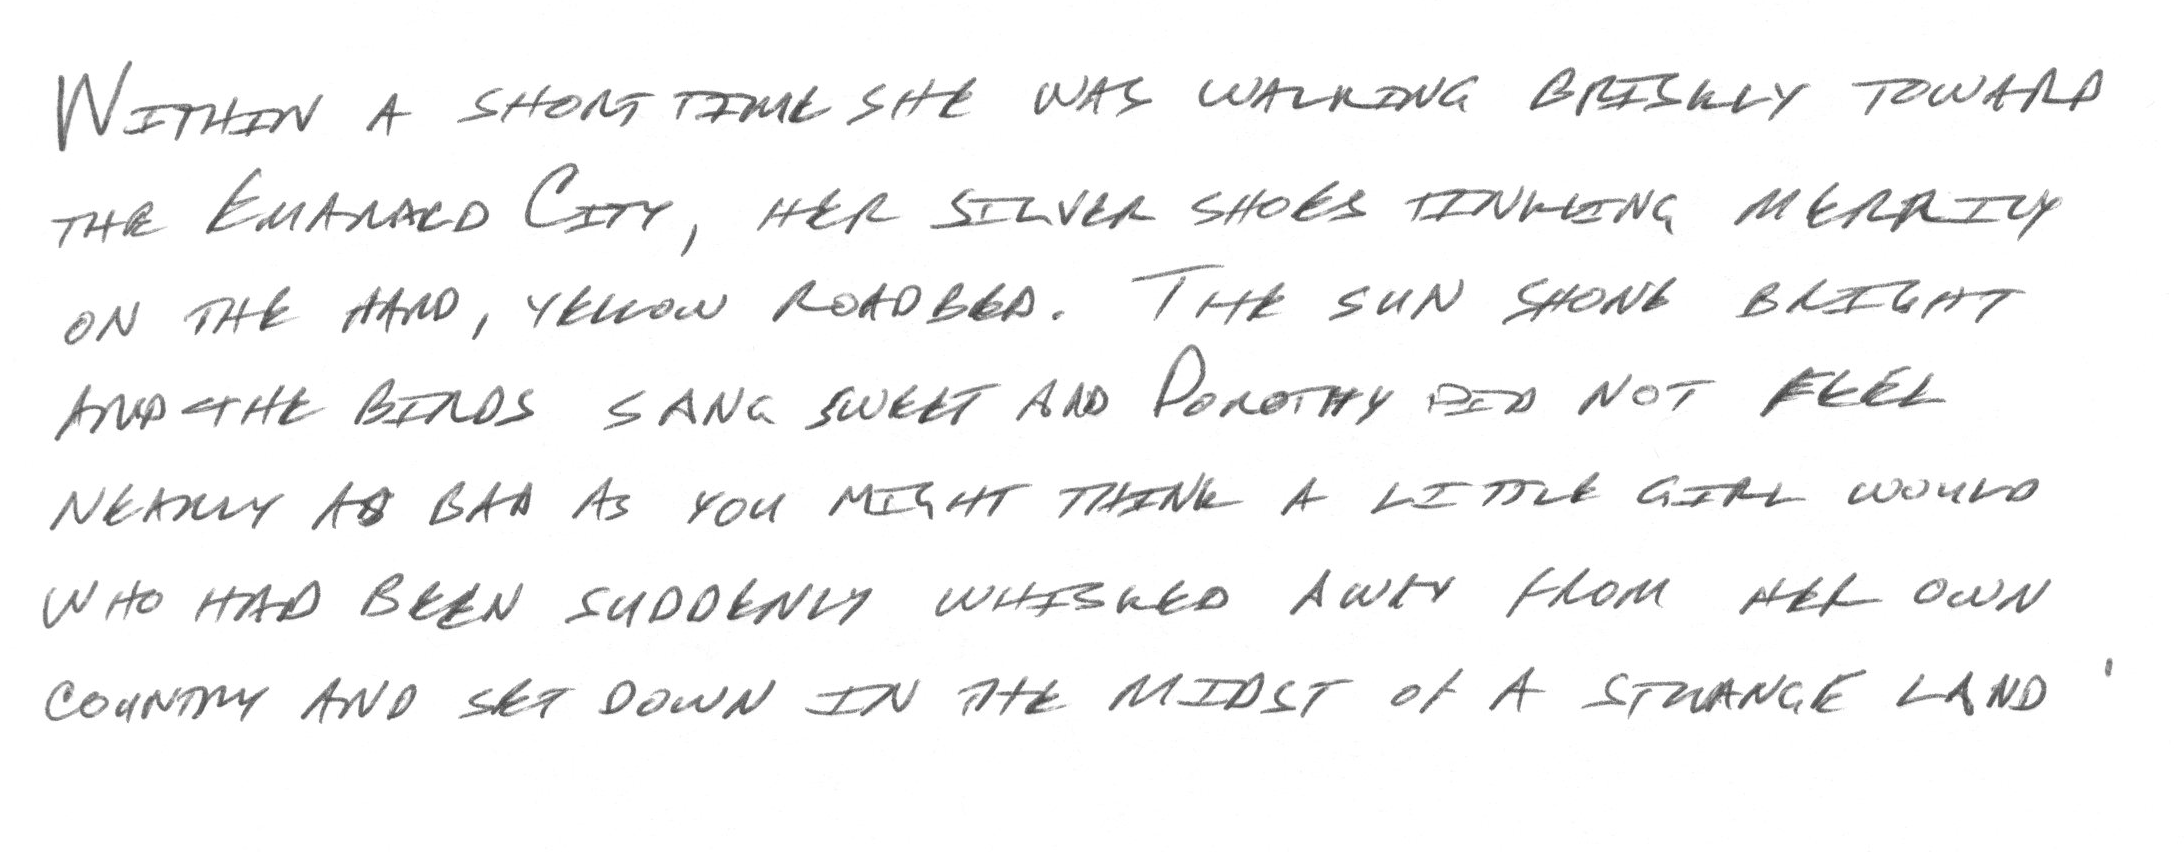 WITHIN A SHORT TIME SHE WAS WALKING BRISKLY TOWARD
THE EMARALD CITY, HER SILVER SHOES TINKLING MERRILY
ON THE HARD, YELLOW ROADBED. THE SUN SHONE BRIGHT
AND THE BIRDS SANG SWEET AND DOROTHY DID NOT FEEL
NEARLY AS BAD AS YOU MIGHT THINK A LITTLE GIRL WOULD
WHO HAD BEEN SUDDENLY WHISKED AWAY FROM HER OWN
COUNTRY AND SET DOWN IN THE MIDST OF A STRANGE LAND '